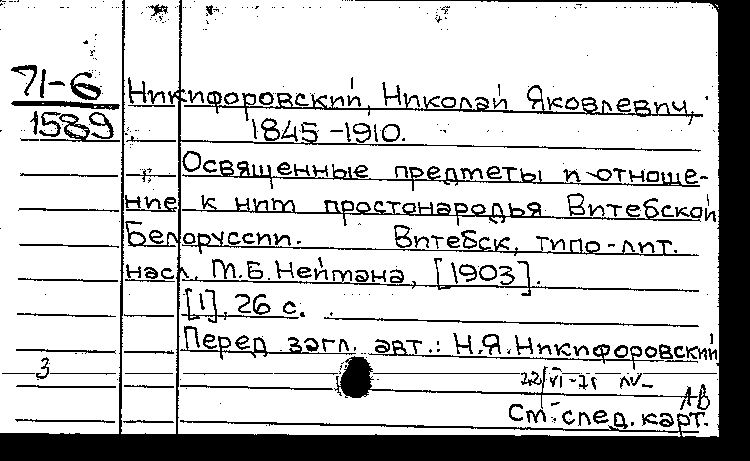 71-6
1589
Никифоровский, Николай Яковлевич,
1845-1910.
Освященные предметы и отноше-
ние к ним простонародья Витебской
Белоруссии. Витебск, типо-лит.
насл. М.Б.Неймана, [1903].
[1], 26 с.
Перед загл. авт.: Н.Я.Никифоровский
3
22/VI-71
АВ
См. след. карт.